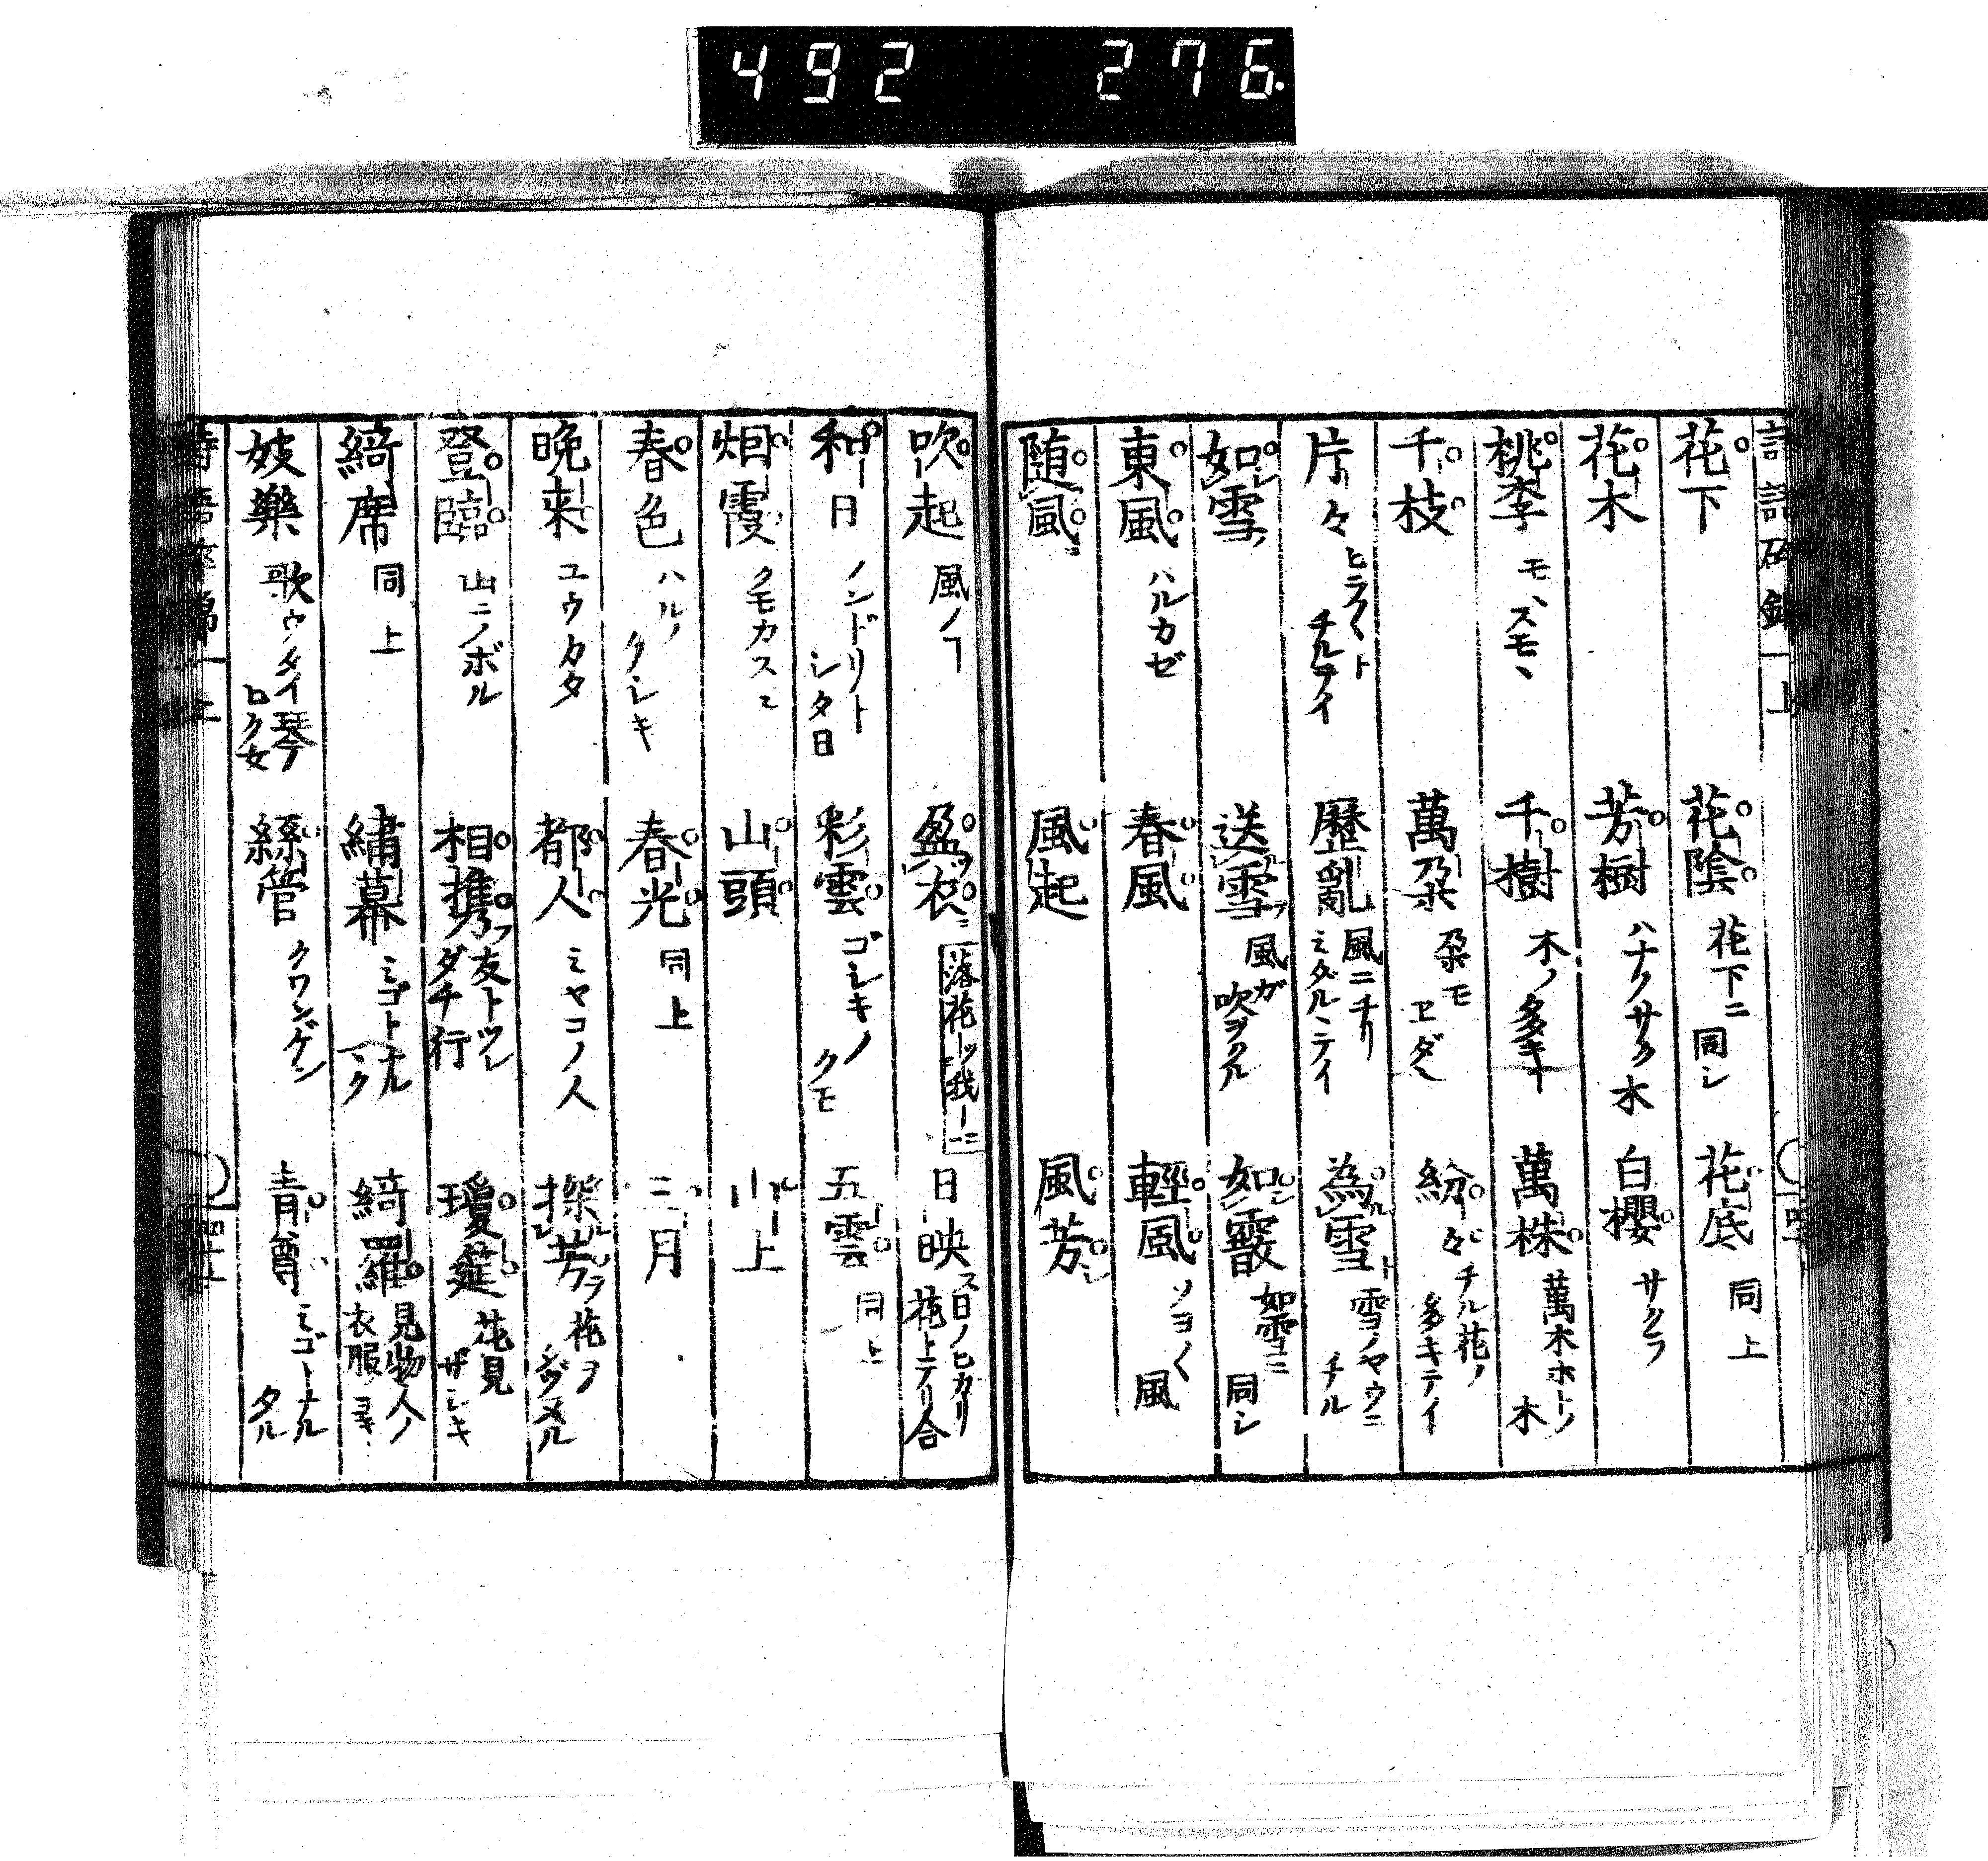 492 276.
花下 花陰 花下ニ同シ 花底 同上
花木 芳樹 ハナノサク木 白櫻 サクラ
桃李 モヽスモヽ 千樹 木ノ多キ 萬株 萬木ホトノ木
千枝 萬朶 朶モヱダ 紛々 チル花ノ多キテイ
片々 ヒラ〱トチルテイ 歷亂 風ニチリミダルヽテイ 為雪 雪ノヤウニチル
如雪 送雪 風ガ吹ヲクル 如霰 如雪ニ同シ
東風 ハルカゼ 春風 輕風 ソヨ〱風
随風 風起 風芳
吹起 風ノ 盈衣 落花 我 日映 日ノヒカリ花トテリ合
和日 ノンドリトシタ日 彩雲 ゴシキノクモ 五雲 同上
烟霞 クモカスミ 山頭 山上
春色 ハルノケシキ 春光 同上 三月
晩来 ユウカタ 都人 ミヤコノ人 探芳 花ヲ
登臨 山ニノボル 相携 友トツレダチ行 瓊筵 花見ザシキ
綺席 同上 繡幕 ミゴトナルマク 綺羅 見物人ノ衣服
妓樂 歌 琴 絲管 クワンゲン 青尊 ミゴトナルタル